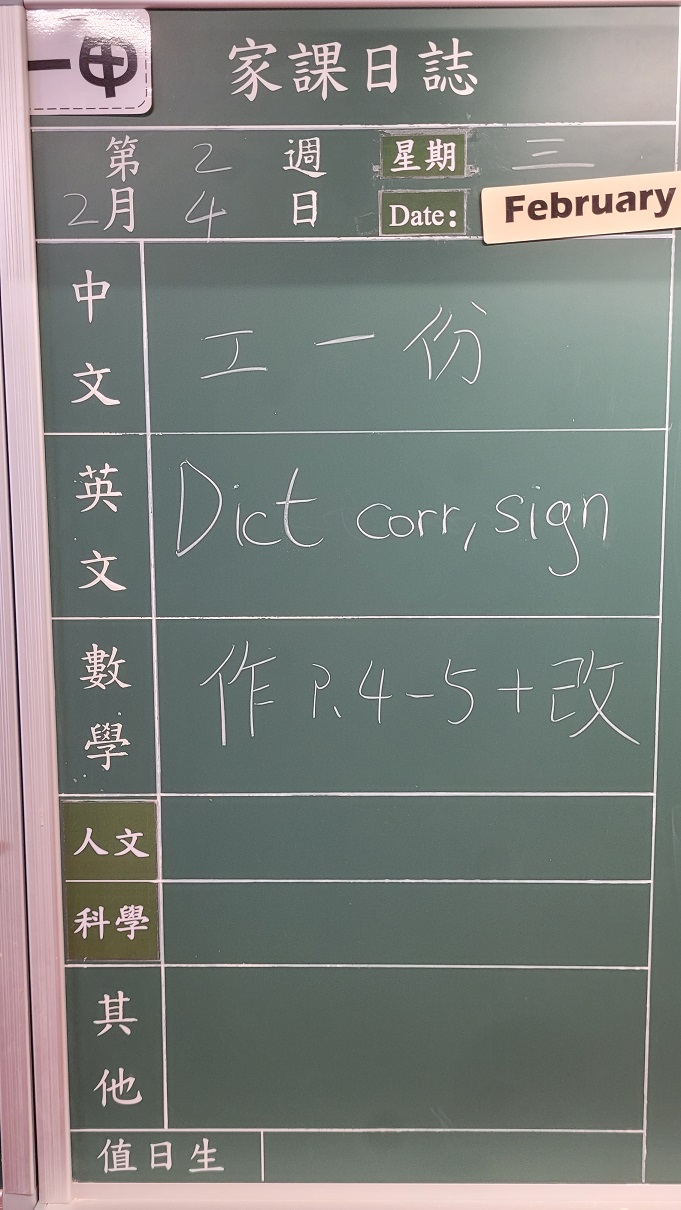 一甲
家課日誌
第 2 週 星期 三
2月 4 日 Date: February
中文 工一份
英文 Dict corr, sign
數學 作 P.4-5+改
人文
科學
其他
值日生